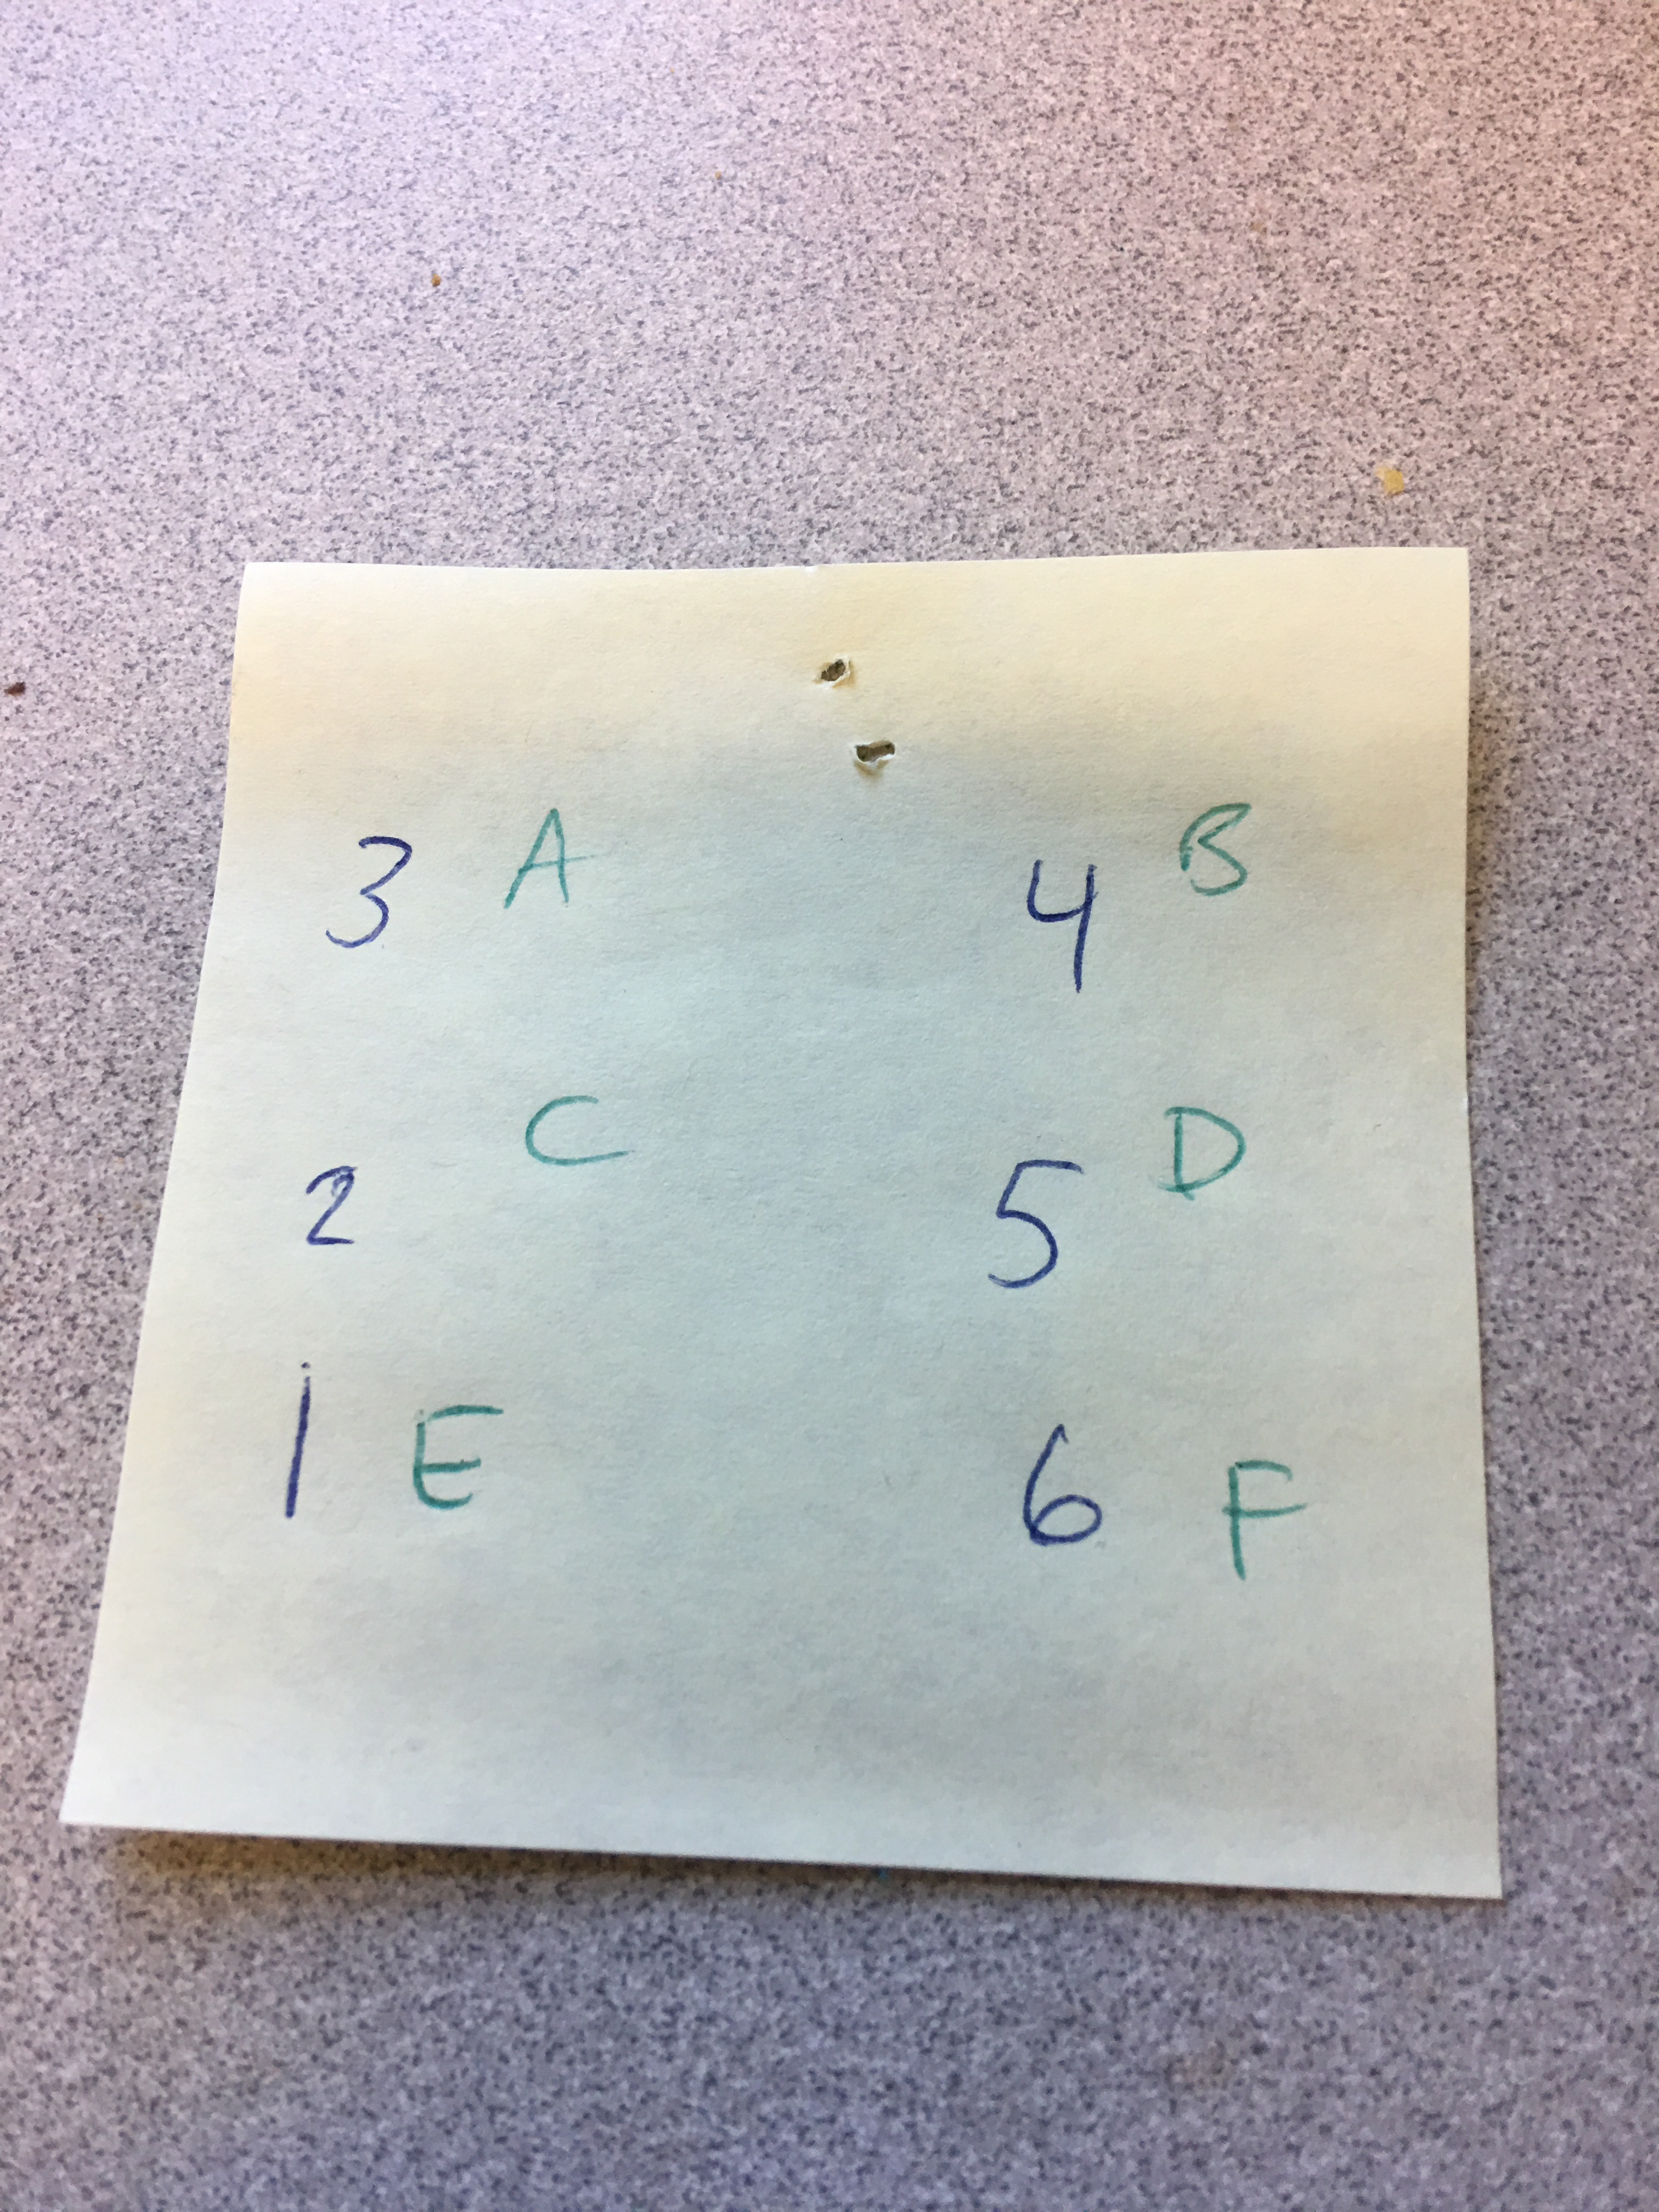 3 A 4 B
2 C 5 D
1 E 6 F